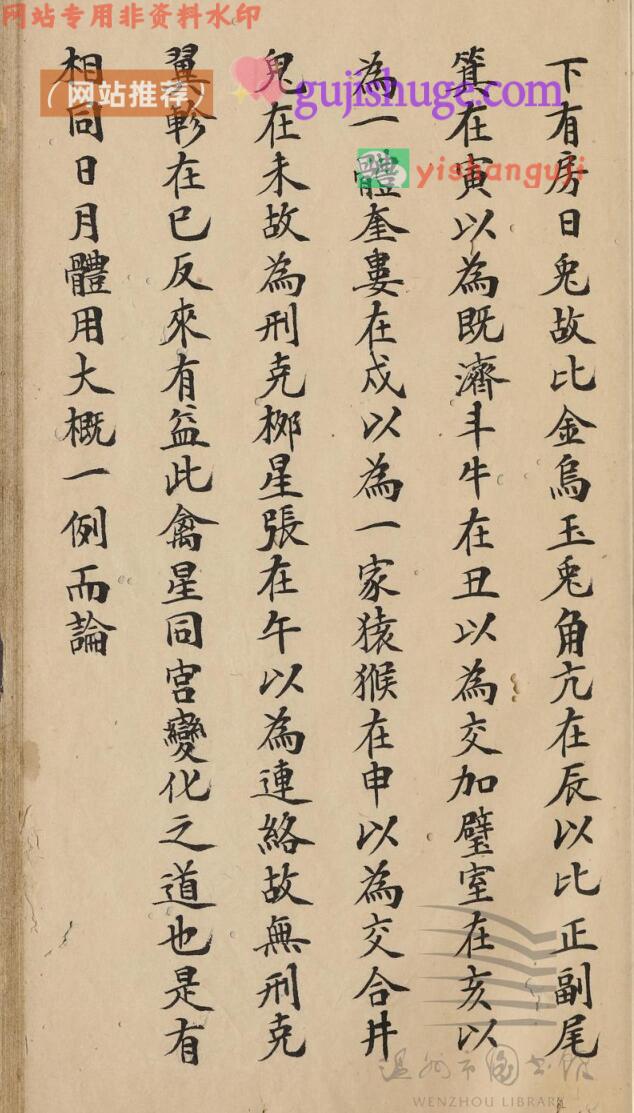 网站专用非资料水印
（网站推荐）
gujishuge.com
yishanguji
下有房日兎故比金烏玉兎角亢在辰以比正副尾
箕在寅以為既濟斗牛在丑以為交加壁室在亥以
為一體奎婁在戌以為一家猿猴在申以為交合井
鬼在未故為刑克栁星張在午以為連絡故無刑克
翼軫在巳反來有益此禽星同宮變化之道也是有
相同日月體用大概一例而論
温州市图书馆
WENZHOU LIBRARY